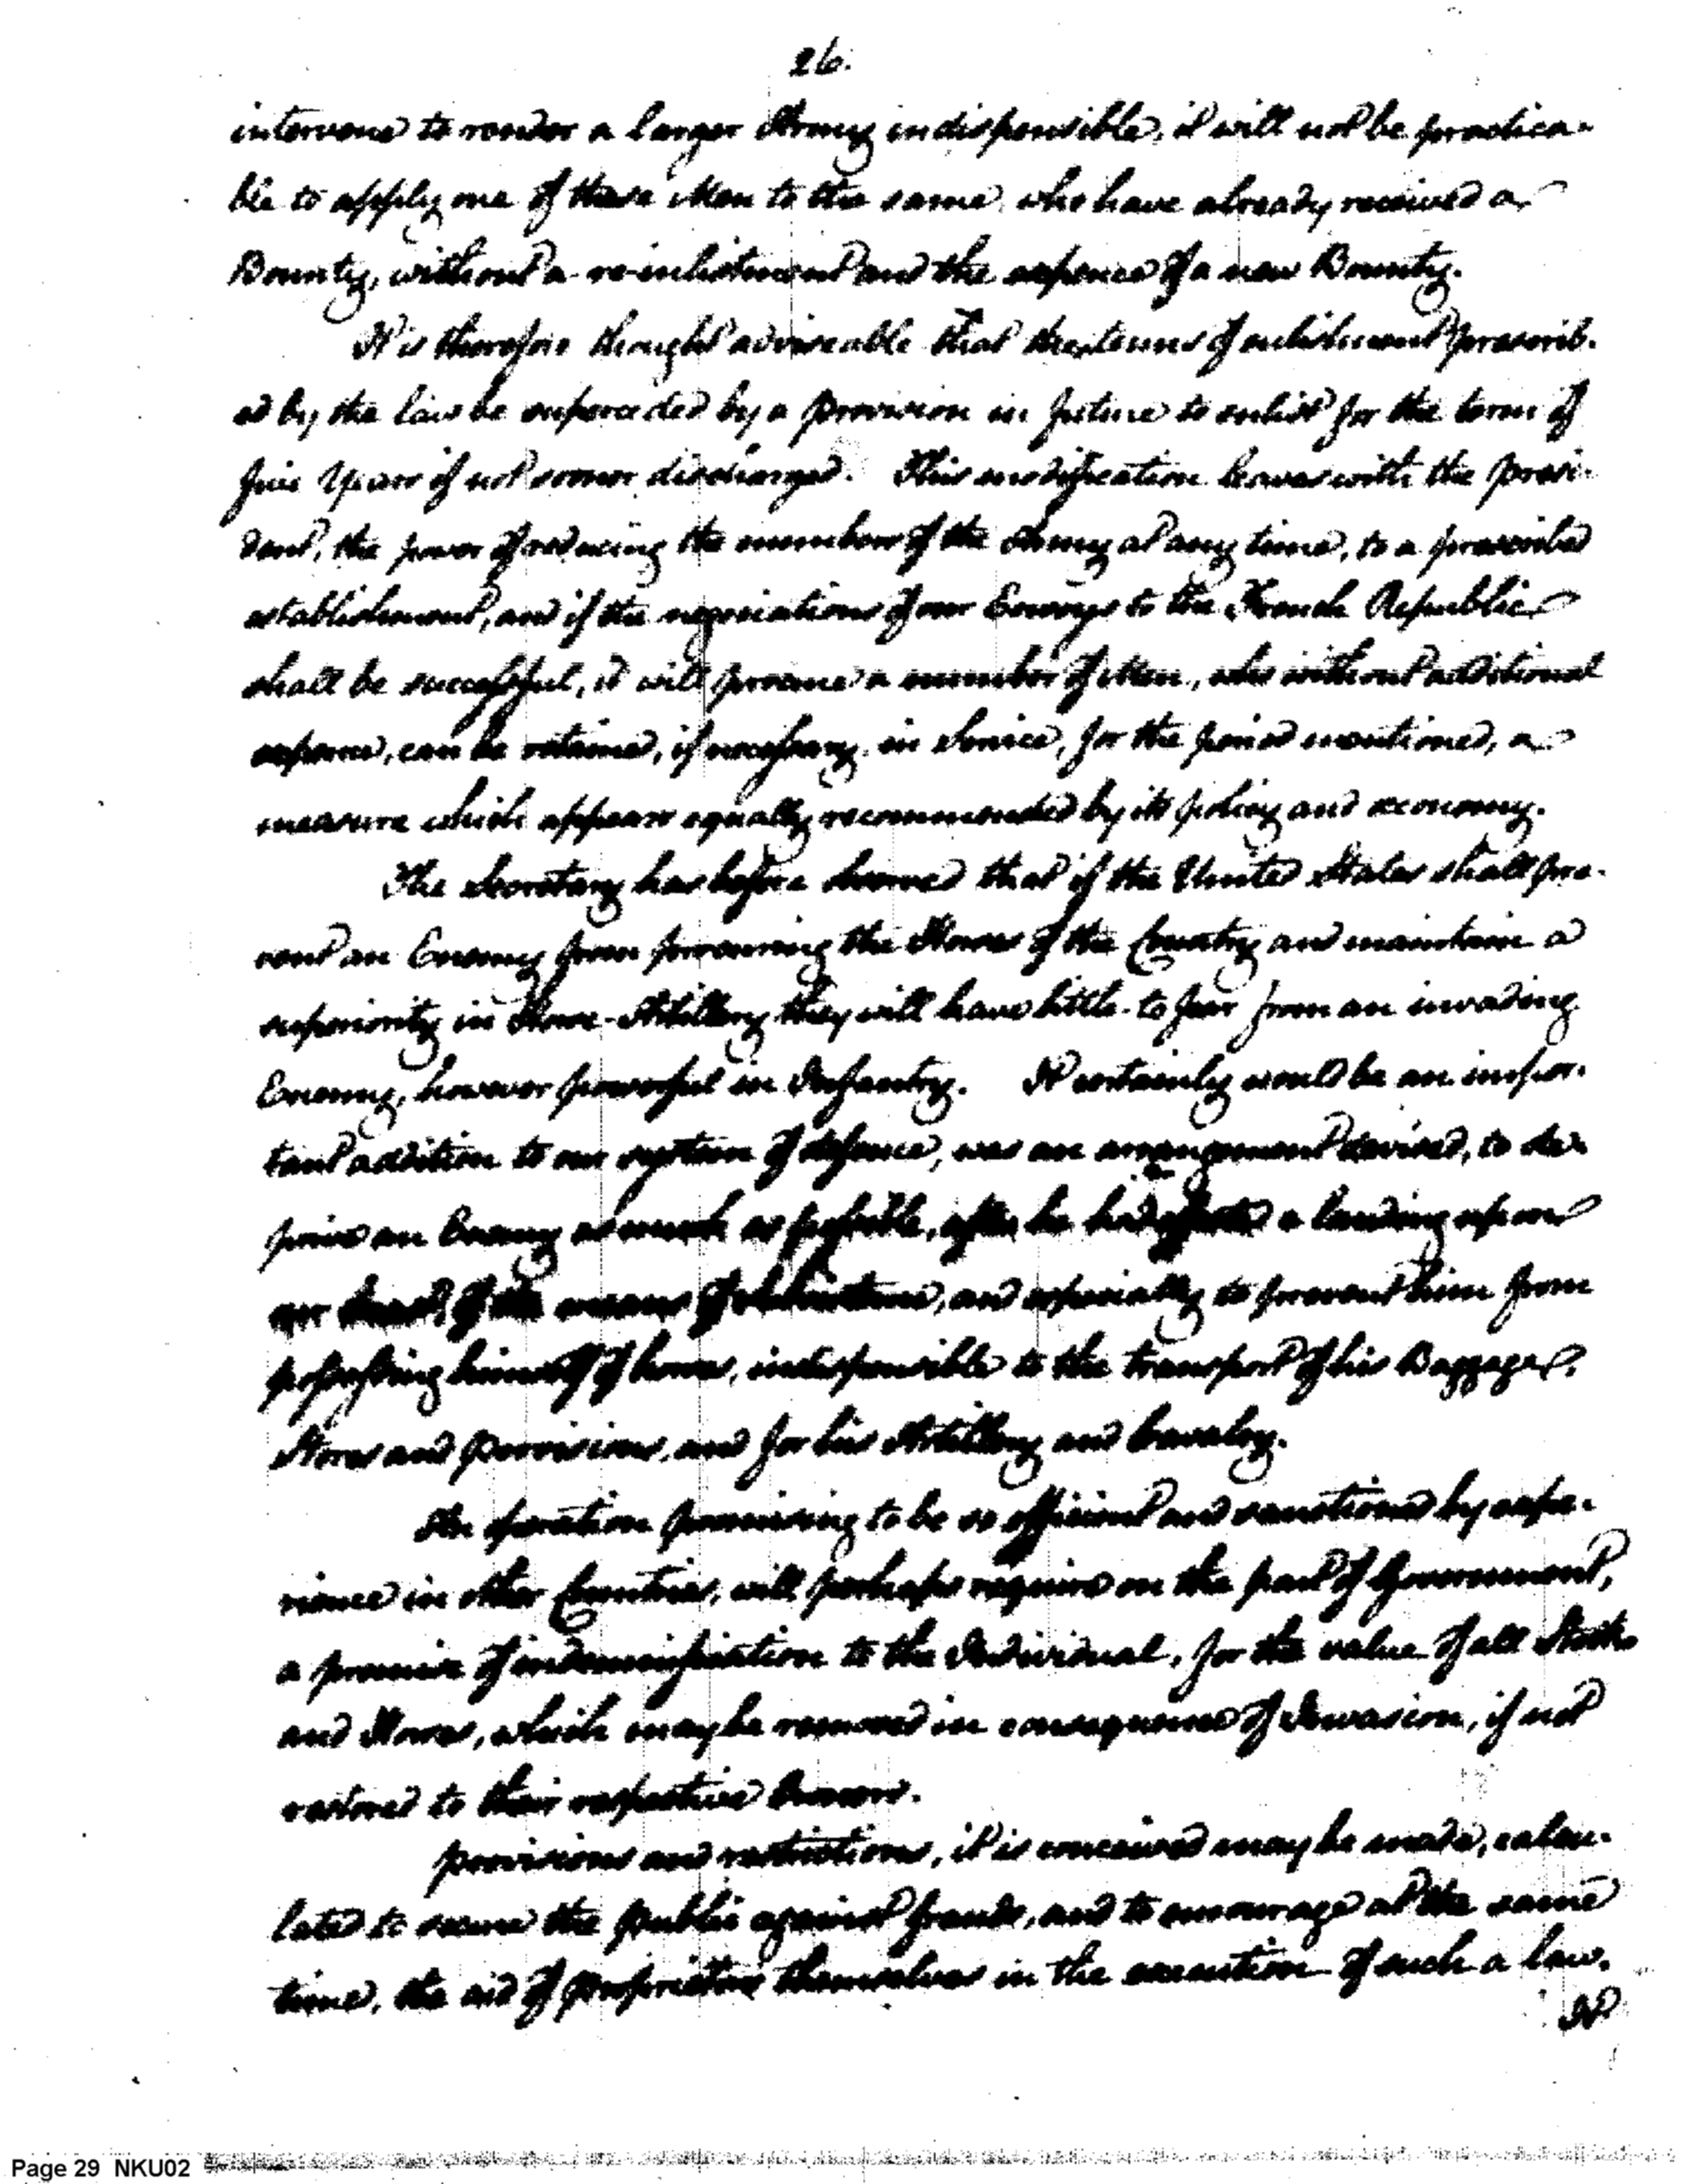 26.
intervene to render a larger Army indispensible, it will not be practica-
ble to apply one of these Men to the same, who have already received a
Bounty, without a re-inlistment and the expence of a new Bounty.
It is therefore thought adviseable that the terms of enlistment prescrib-
ed by the law be superceded by a provision in future to enlist for the term of
five Years if not sooner discharged. This modification leaves with the Presi-
dent, the power of reducing the number of the Army at any time, to a prescribed
establishment, and if the negociations of our Envoys to the French Republic
shall be successful, it will procure a number of Men, who without additional
expence, can be retained, if necessary, in Service, for the period mentioned, a
measure which appears equally recommended by its policy and œconomy.
The Secretary has before observed that if the United States shall pre-
vent an Enemy from procuring the Horses of the Country and maintain a
superiority in Horse-Artillery they will have little to fear from an invading
Enemy, however powerful in Infantry. It certainly would be an impor-
tant addition to our system of defence, was an arrangement devised, to de-
prive an Enemy as much as possible, after he had effected a landing upon
our Coast, of the means of subsistence, and especially to prevent him from
possessing himself of horses, indispensible to the transport of his Baggage,
Stores and Provisions, and for his Artillery and Cavalry.
An operation promising to be so efficient and sanctioned by expe-
rience in other Countries, will perhaps require on the part of Government,
a promise of indemnification to the Individual, for the value of all Stock
and Horses, which may be removed in consequence of Invasion, if not
restored to their respective Owners.
Provisions and restrictions, it is conceived may be made, calcu-
lated to secure the public against frauds, and to encourage at the same
time, the aid of proprietors themselves in the execution of such a law.
It
Page 29 NKU02